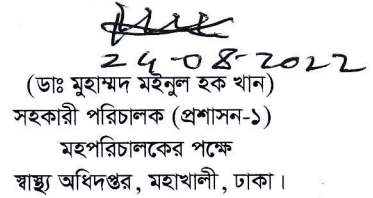 24-08-2022
(ডাঃ মুহাম্মদ মইনুল হক খান)
সহকারী পরিচালক (প্রশাসন-১)
মহপরিচালকের পক্ষে
স্বাস্থ্য অধিদপ্তর, মহাখালী, ঢাকা।